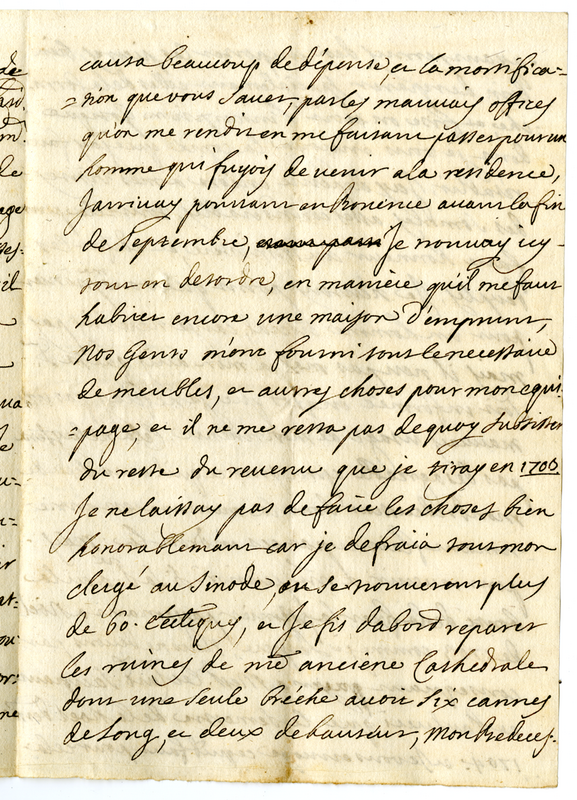 causa beaucoup de dépense, et la mortifica=
=tion que vous savez, par les mauvais offices
qu'on me rendit en me faisant passer pour un
homme qui fuyois de venir a la residence,
J'arrivay pourtant en Provence avant la fin
de Septembre, Je trouvay icy
tout en desordre, en maniere qu'il me faut
habiter encore une maison d'emprunt,
Nos Gents m'ont fourni tout le necessaire
de meubles, et autres choses pour mon equi-
=page, et il ne me resta pas de quoy subsister
du reste du revenu que je tiray en 1700
Je ne laissay pas de faire les choses bien
honorablemant car je defraia tout mon
clergé au Sinode, ou se trouverent plus
de 60. , et Je fis dabord reparer
les ruines de mē anciene Cathedrale
dont une seule bréche avoit six cannes
de Long, et deux de hauteur, Mon Predeces=
de
le
il
ne